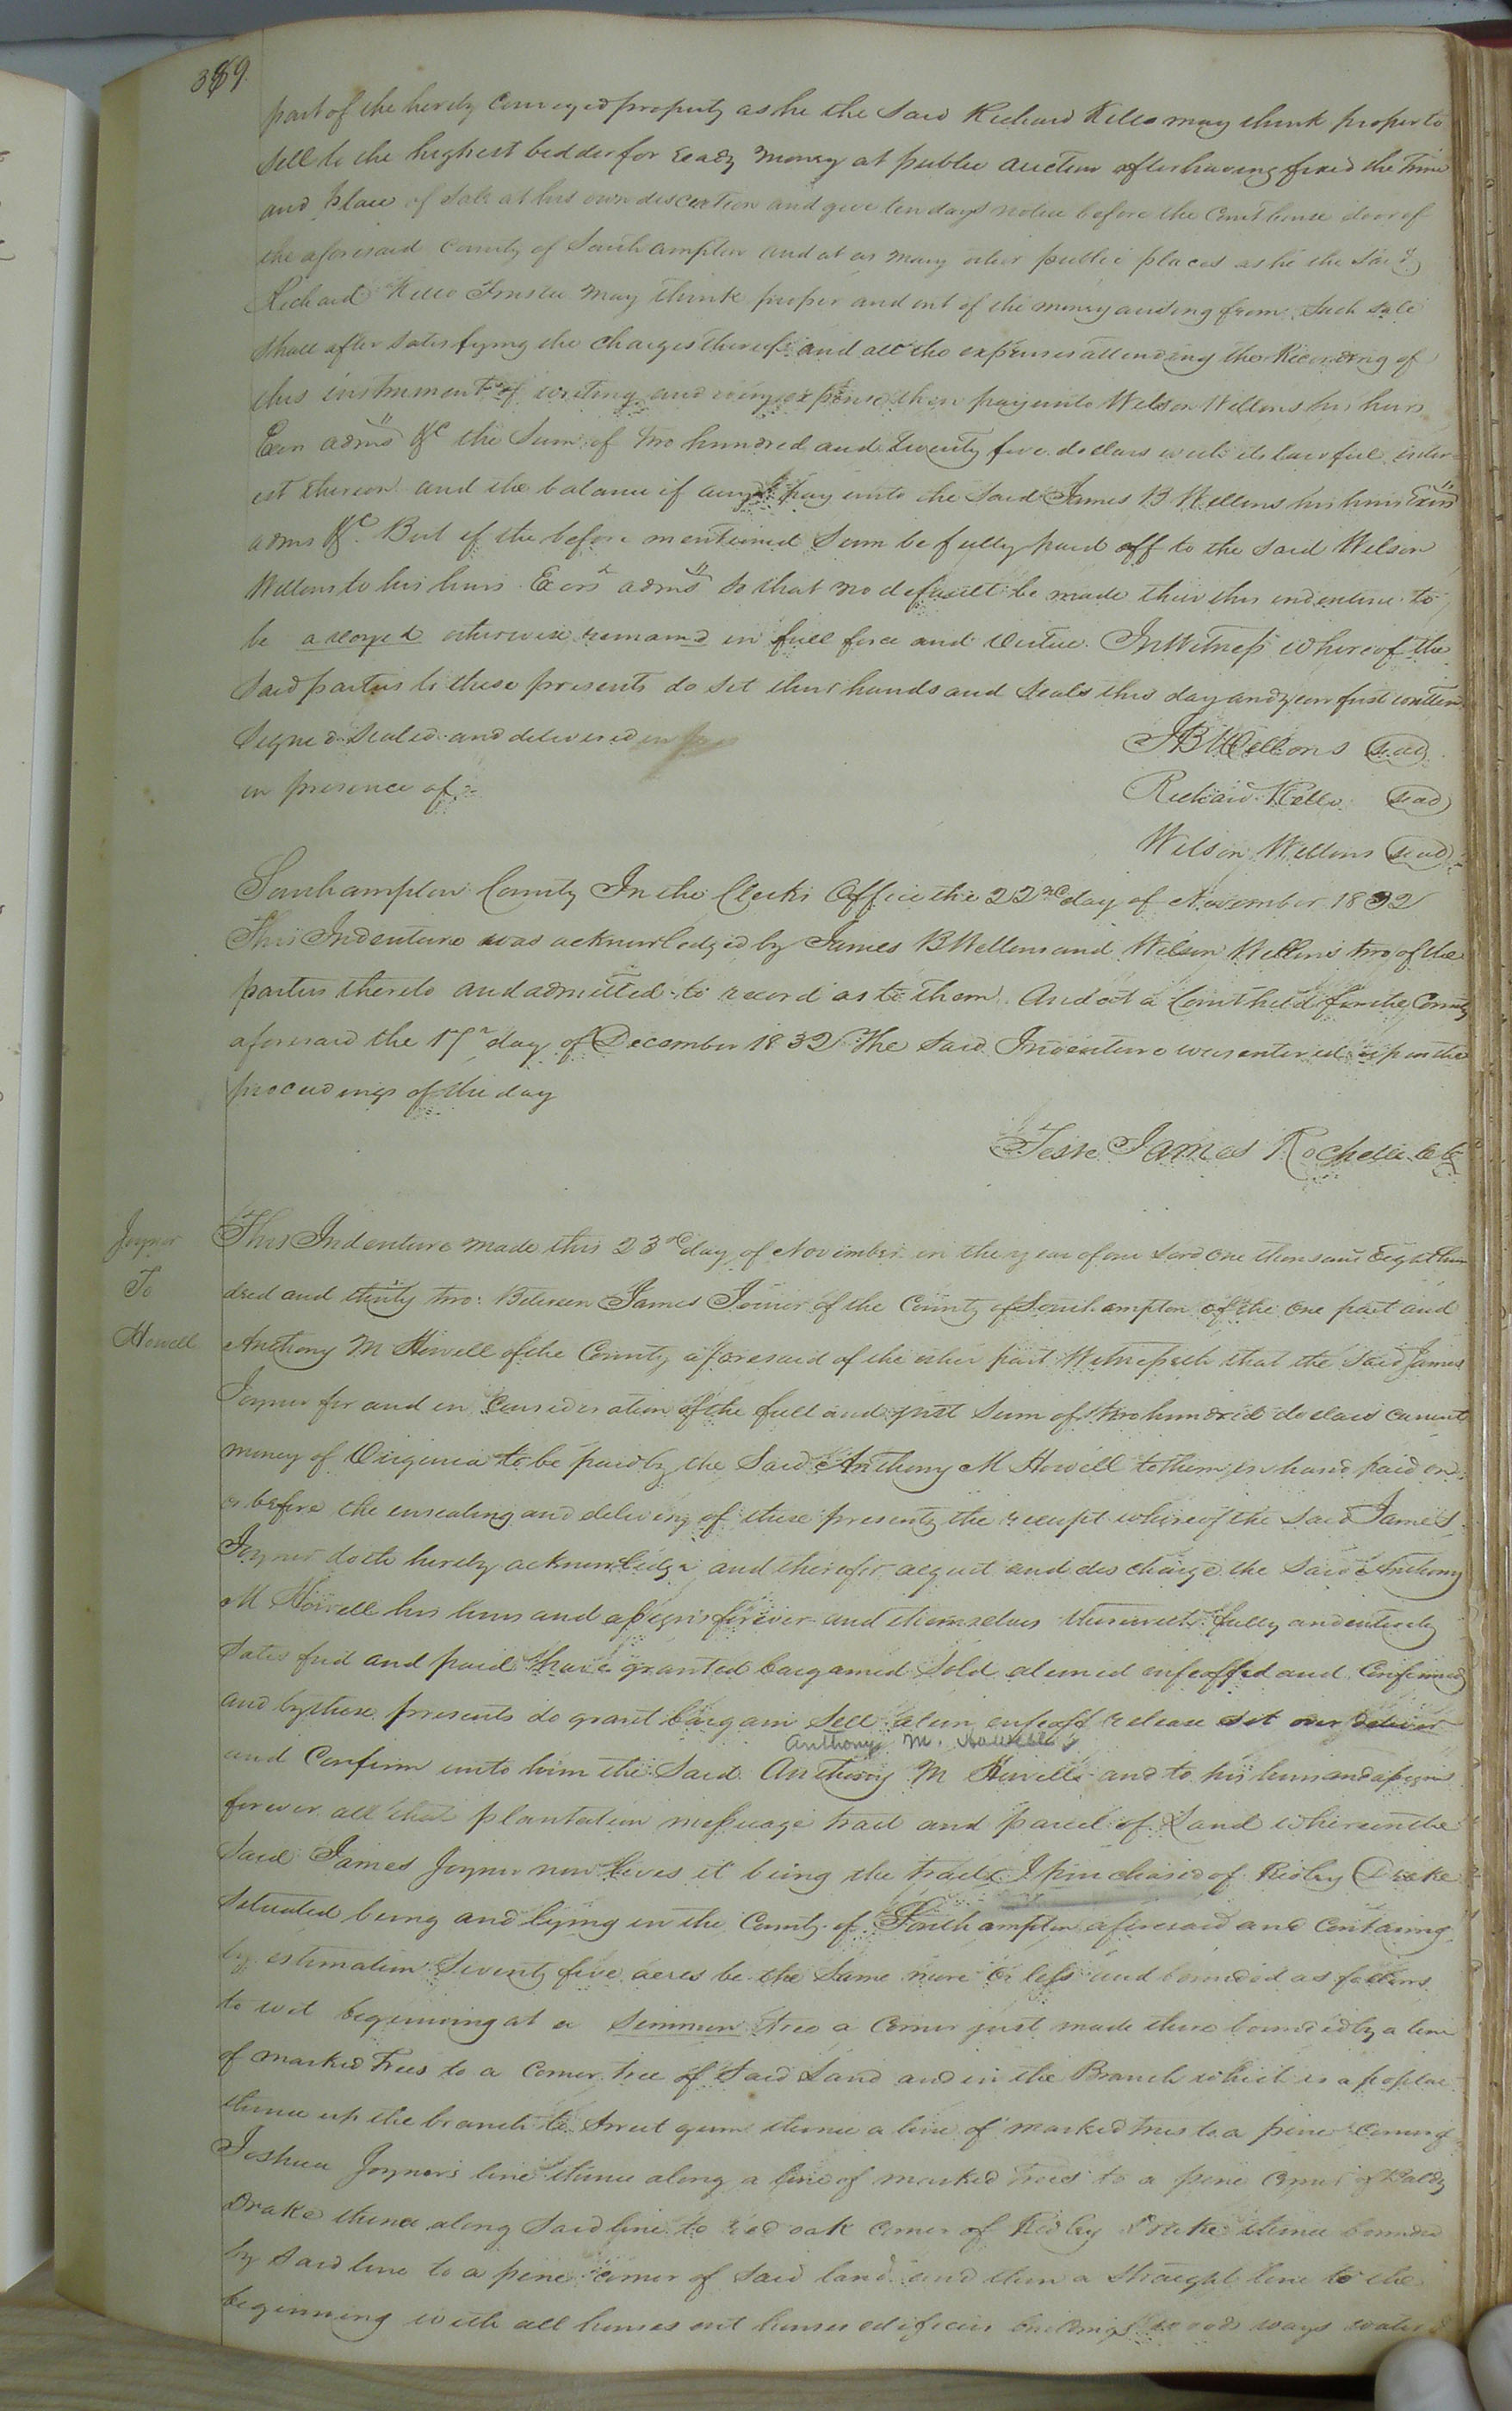 369
part of the hereby Conveyed property as he the Said Richard Kello may think proper to
Sell to the highest bidder for ready Money at public auction after having fixed the Time
and place of Sale at his own discretion and give ten days notice before the Court house door of
the aforesaid County of Southampton and at as many other public places as he the Said
Richard Kello Trustee may think proper and out of the money arising from Such Sale
Shall after Satisfying the charges thereof and all the expenses attending the Recording of
this instrument of writing and expense then pay unto Wilson Wellons his heirs
Exrs adms &c the Sum of Two hundred and Twenty five dollars with its lawful inter
est thereon and the balance if any pay unto the Said James B Wellons his heirs Exrs
adms &c. But if the before mentioned Sum be fully paid off to the Said Wilson
Wellons to his heirs Exrs adms So that no default be made then this indenture to
be otherwise remand in full force and Virtue. In Witness whereof the
Said parties to these presents do Set their hands and Seals this day and year first written
Signed Sealed and delivered
in presence of
J B Wellons Seal
Richard Kello Seal
Wilson Wellons Seal
Southampton County In the Clerks Office the 22nd day of November 1832
This Indenture was acknowledged by James B Wellons and Wilson Wellons two of the
parties thereto and admitted to record as to them. And at a Court held for the County
aforesaid the 17 day of December 1832 The Said Indenture was entered upon the
proceedings of the day
Teste James Rochelle
Joyner
To
Howell
This Indenture made this 23rd day of November in the year of our Lord One thousand Eight hun
dred and thirty two: Between James Joiner of the County of Southampton of the one part and
Anthony M Howell of the County aforesaid of the other part Witnesseth that the Said James
Joyner for and in Consideration of the full and just Sum of two hundred dollars current
money of Virginia to be paid by the Said Anthony M Howell to them in hand paid on
or before the ensealing and delivery of these presents the receipt whereof the Said James
Joyner doth hereby acknowledge and therefor acquit and discharge the Said Anthony
M Howell his heirs and assigns forever and themselves therewith fully and entirely
Satisfied and paid have granted bargained Sold aliened enfeoffed and Confirmed
and by these presents do grant bargain Sell alien enfeoff release set over deliver
Anthony M. Howell
and Confirm unto him the Said Anthony M Howell and to his heirs and assigns
forever all that plantation messuage tract and parcel of Land whereon the
Said James Joyner now lives it being the tract I purchased of Ridley Drake
Situated being and lying in the County of Southampton aforesaid and Containing
by estimation Seventy five acres be the Same more or less and bounded as follows
to wit beginning at a Simmon tree a Corner just made thence bounded by a line
of marked Trees to a Corner tree of Said Land and in the Branch which is a poplar
thence up the branch to Sweet gum thence a line of marked trees to a pine Corner of
Joshua Joyner's line thence along a line of marked Trees to a pine Corner of
Drake thence along Said line to red oak Corner of Ridley Drake thence bounded
by Said line to a pine Corner of Said land and then a Straight line to the
beginning with all houses out houses edifices buildings woods ways waters